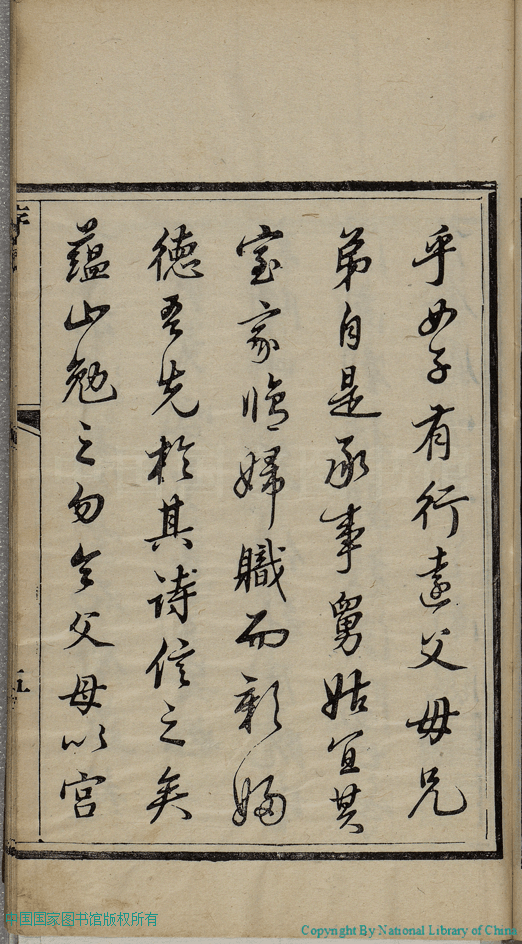 乎女子有行遠父母兄
弟自是承事舅姑宜其
室家修婦職而彰婦
德吾先於其詩信之矣
蘊山勉之勿令父母以宮
序
五
中国国家图书馆版权所有
Copyright By National Library of China